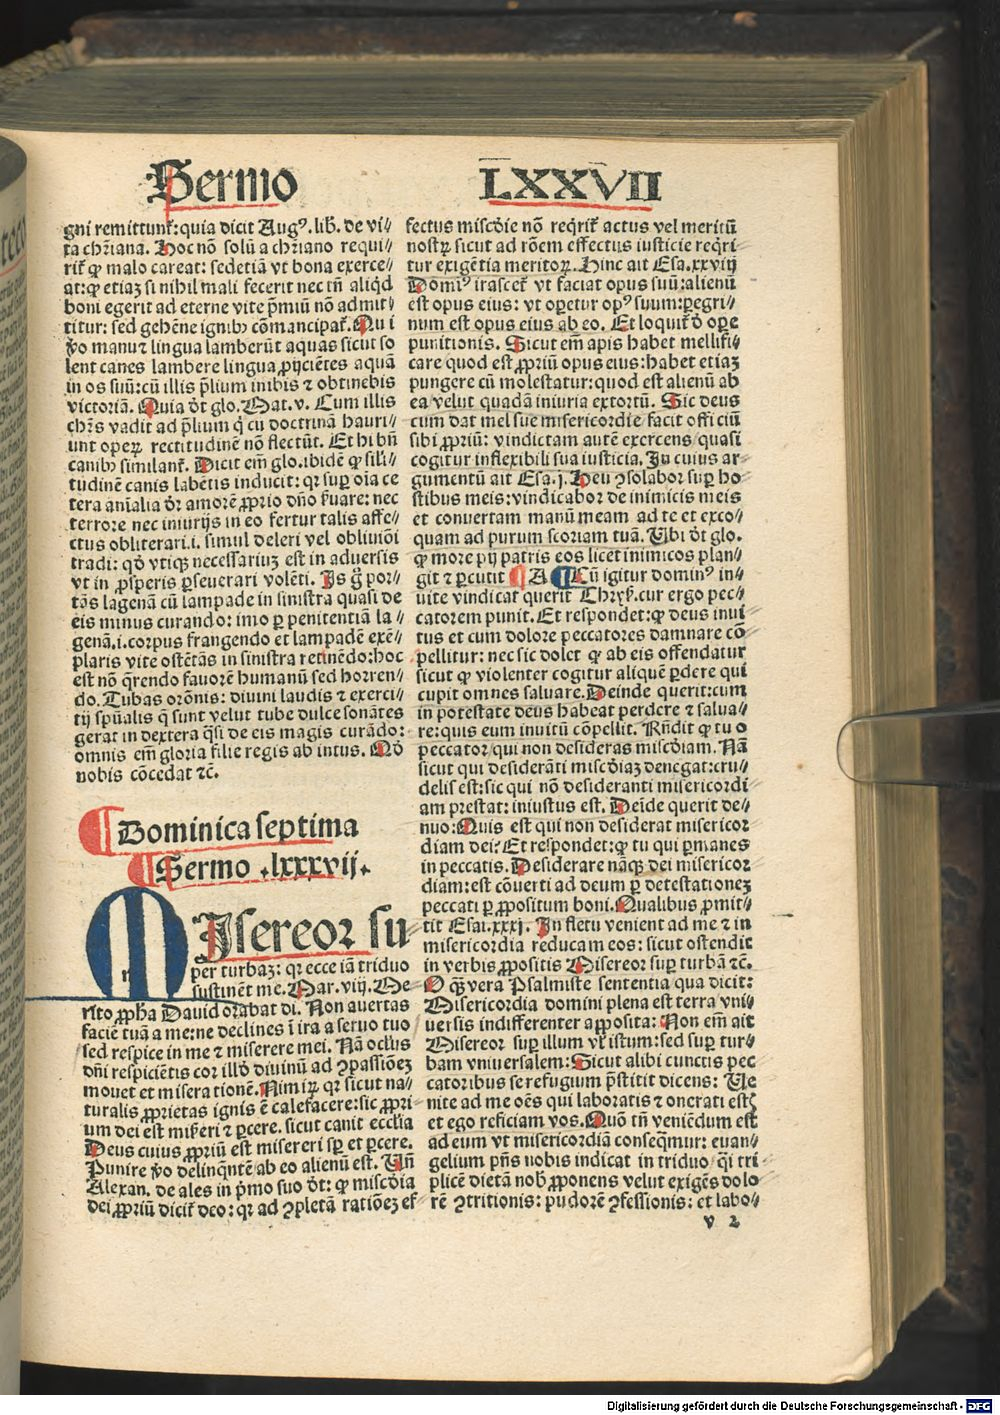 Sermo LXXVII
gni remittunt̃: quia dicit Augꝰ. lib̃. de vi⸗
ta chr̃iana. Hoc nõ solũ a chr̃iano requi⸗
rit̃ ꝙ malo careat: sedetiã vt bona exerce⸗
at: ꝙ etiaʒ si nihil mali fecerit nec tñ aliqd̃
boni egerit ad eterne vite p̃miũ nõ admit⸗
titur: sed gehẽne ignibꝫ cõmancipat̃. Qui
ṽo manu ⁊ lingua lamberũt aquas sicut so
lent canes lambere lingua ꝓijciẽtes aquã
in os suũ: cũ illis p̃lium inibis ⁊ obtinebis
victoriã. Quia dr̃ glo. Mat. v. Cum illis
chr̃s vadit ad p̃lium q̇ cũ doctrinã hauri⸗
unt operꝫ rectitudinẽ nõ flectũt. Et hi bñ
canibꝫ similant̃. Dicit em̃ glo. ibidẽ ꝙ sil̃i
tudinẽ canis labẽtis inducit: qr sup̱ oĩa ce
tera aĩalia dr̃ amorẽ ꝓprio dño s̃uare: nec
terrore nec iniurijs in eo fertur talis affe⸗
ctus obliterari .i. simul deleri vel obliuiõi
tradi: qd̃ vtiqꝫ necessariuʒ est in aduersis
vt in ꝓsperis ꝑseuerari volẽti. Is g̃ por⸗
tãs lagenã cũ lampade in sinistra quasi de
eis minus curando: imo ꝑ penitentiã la⸗
genã .i. corpus frangendo et lampadẽ exẽ⸗
plaris vite ostẽtãs in sinistra retinẽdo: hoc
est nõ q̃rendo fauorẽ humanũ sed horren⸗
do. Tubas orõnis: diuini laudis ⁊ exerci⸗
tij spũalis q̃ sunt velut tube dulce sonãtes
gerat in dextera q̃si de eis magis curãdo:
omnis em̃ gloria filie regis ab intus. Qd̃
nobis cõcedat ⁊c̃.
Dominica septima
Sermo .lxxxvij.
MIsereor su
per turbaʒ: qr ecce iã triduo
sustinẽt me. Mar. viij. Me
rito ꝓph̃a Dauid orabat di. Non auertas
faciẽ tuã a me: ne declines ĩ ira a seruo tuo
sed respice in me ⁊ miserere mei. Nã ocl̃us
dñi respiciẽtis cor illd̃ diuinũ ad ꝯpassiõeʒ
mouet et miserationẽ. Nimirꝫ qr sicut na⸗
turalis ꝓprietas ignis ẽ calefacere: sic ꝓpri⸗
um dei est mis̃eri ⁊ ꝑcere. sicut canit eccl̃ia
Deus cuius ꝓpriũ est misereri sꝑ et ꝑcere.
Punire ṽo delinqñtẽ ab eo alienũ est. Vñ
Alexan. de ales in p̃mo suo dr̃: ꝙ misc̃dia
dei ꝓpriũ dicit̃ deo: qr ad ꝯpletã ratiõeʒ ef
fectus misc̃die nõ req̃rit̃ actus vel meritũ
nostrꝫ sicut ad rõem effectus iusticie req̃ri
tur exigẽtia meritorꝫ. Hinc ait Esa. xxviij
Domiꝰ irascet̃ vt faciat opus suũ: alienũ
est opus eius: vt oꝑetur opꝰ suum: ꝑegri⸗
num est opus eius ab eo. Et loquit̃ d̃ oꝑe
punitionis. Sicut em̃ apis habet mellifi⸗
care quod est ꝓpriũ opus eius: habet etiaʒ
pungere cũ molestatur: quod est alienũ ab
ea/ velut quadã iniuria extortũ. Sic deus
cum dat mel sue misericordie/ facit officiũ
sibi ꝓpriũ: vindictam autẽ exercens/ quasi
cogitur inflexibili sua iusticia. In cuius ar⸗
gumentũ ait Esa. j. Heu ꝯsolabor sup̱ ho
stibus meis: vindicabor de inimicis meis
et conuertam manũ meam ad te et exco⸗
quam ad purum scoriam tuã. Vbi dr̃ glo.
ꝙ more pij patris eos licet inimicos plan⸗
git ⁊ ꝑcutit ¶ A ¶ Cũ igitur dominꝰ in⸗
uite vindicat querit Chrys̃. cur ergo pec⸗
catorem punit. Et respondet: ꝙ deus inui
tus et cum dolore peccatores damnare cõ
pellitur: nec sic dolet ꝙ ab eis offendatur
sicut ꝙ violenter cogitur aliquẽ ꝑdere qui
cupit omnes saluare. Deinde querit: cum
in potestate deus habeat perdere ⁊ salua⸗
re: quis eum inuitũ cõpellit. Rñdit ꝙ tu o
peccator/ qui non desideras misc̃diam. Nã
sicut qui desiderãti misc̃diaʒ denegat: cru⸗
delis est: sic qui nõ desideranti misericordi
am prestat: iniustus est. Deĩde querit de⸗
nuo: Quis est qui non desiderat misericor
diam dei? Et respondet: ꝙ tu qui ꝑmanes
in peccatis. Desiderare nãqꝫ dei misericor
diam: est cõuerti ad deum ꝑ detestationeʒ
peccati ꝑ ꝓpositum boni. Qualibus ꝓmit⸗
tit Esai. xxxj. In fletu venient ad me ⁊ in
misericordia reducam eos: sicut ostendit
in verbis ꝓpositis Misereor suꝑ turbã ⁊c̃.
O q̃ꝫ vera Psalmiste sententia qua dicit:
Misericordia domini plena est terra vni⸗
uersis indifferenter apposita: Non em̃ ait
Misereor suꝑ illum vl̃ istum: sed suꝑ tur⸗
bam vniuersalem: Sicut alibi cunctis pec
catoribus se refugium p̃stitit dicens: Ve
nite ad me oẽs qui laboratis ⁊ onerati estꝭ
et ego reficiam vos. Quõ tñ veniẽdum est
ad eum vt misericordiã conseq̃mur: euan⸗
gelium p̃ns nobis indicat in triduo/ q̃i tri
plicẽ dietã nob̃ ꝓponens velut exigẽs dolo
rẽ ꝯtritionis: pudorẽ ꝯfessionis: et labo⸗
v 2
Digitalisierung gefördert durch die Deutsche Forschungsgemeinschaft - DFG